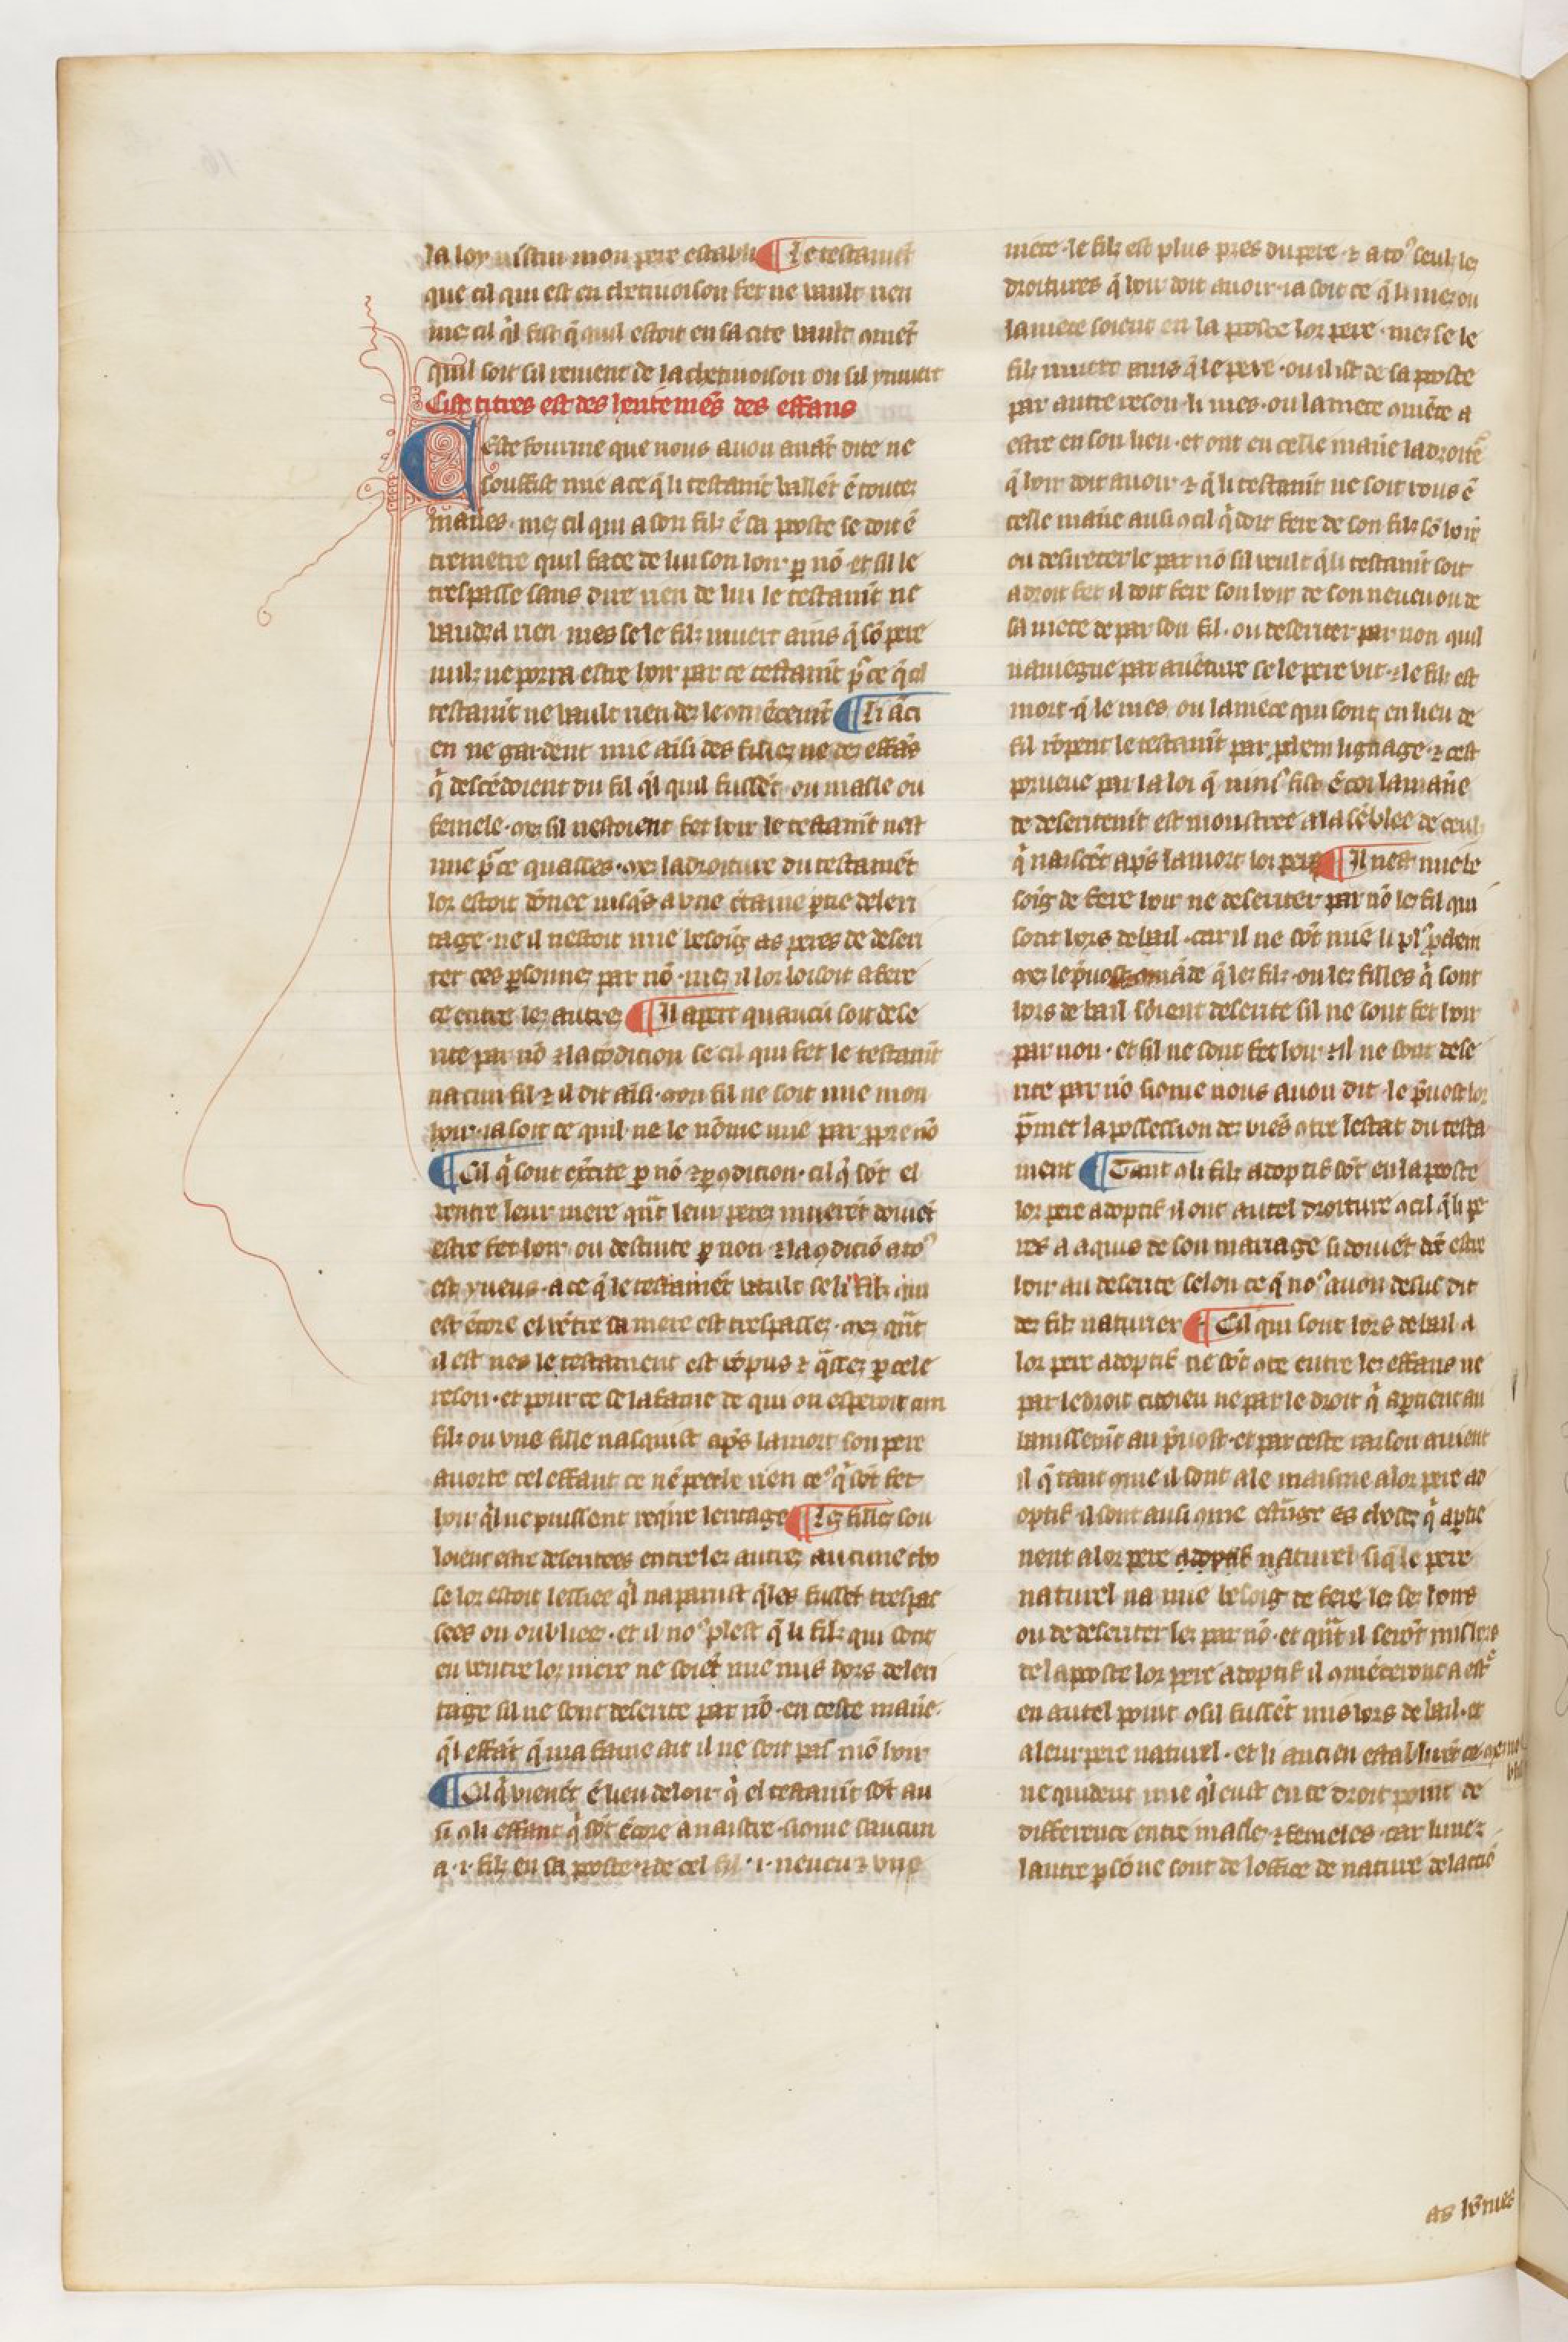 la loy iustin mon pere establi ¶ Le testamēt
que cil qui est en chetiuoison fet ne uault rien
mes cil q̄l fist q̄ quil estoit en sa cite vault 9mēt
quil soit sil reuient de la chetiuoison ou sil y muert
Cist titres est des heritemēs des effans
Ceste fourme que nous auon auāt dite ne
souffist mie a ce q̄ li testamēt vallēt ē toutez
maīeres · mez cil qui a son filz ē sa poste se doit ē
tremetre quil face de lui son hoir p nō · et sil le
trespasse sans dire rien de lui le testamēt ne
vaudra rien mes se le filz muert ains q̄ sō pere
nulz ne porra estre hoir par ce testamēt p̄ ce q̄ cil
testamēt ne vault rien dez le 9mēcemēt ¶ Li āci
en ne gardent mie aīsi des filles ne dez effās
q̄ descēdoient du fil q̄l quil fussēt · ou masle ou
femele · mez sil nestoient fet hoir le testamēt nest
mie p̄ ce quassez · mez la droiture du testamēt
lor estoit dōnee iusq̄s a vne c̄taine ptie deleri
tage · ne il nestoit mie besoīg as peres de deseri
ter ces psonnez par nō · mez il lor loisoit a fere
ce entre lez autrez ¶ Il apert quaucū soit dese
rite par nō τ la cōdicion se cil qui fet le testamēt
na cun fil τ il dit aīsi · mon fil ne soit mie mon
hoir · ia soit ce quil ne le nōme mie par ppre nō
¶ Cil q̄ sont
uentre leur mere q̄nt leur perez muerēt doiuēt
estre fet hoir ou
est yneus · a ce q̄ le testamēt vault se li filz qui
est ēcore el vētre sa mere est trespassez · mez q̄nt
il est nes le testament est rōpus τ q̄ssez p cele
reson · et pour ce se la fame de qui on esperoit cun
filz ou vne fille nasquist ap̄s la mort son pere
auorte cel effant ce nē
hoir q̄l ne puissent reqīre leritage ¶ Les filles sou
loient estre deseritees entre lez autrez aucune cho
se lor estoit lessiee q̄l naparust q̄les fussēt trespas
sees ou oubliees · et il noꝰ plest q̄ li filz qui sont
en ventre lor mere ne soiēt mie mis hors deleri
tage sil ne sont deserite par nō · en ceste maīe
q̄l effāt q̄ ma fame ait il ne soit pas mō hoir
¶ Cil q̄ vienēt ē lieu de loir q̄ el testamēt sōt au
si 9 li effant q̄ sōt ēcore a naistre · si9me saucun
a · i · filz en sa poste · τ de cel fil · i · neueu τ vne
niece · le filz est plus pres du pere · τ a toꝰ seulz lez
droitures q̄ hoir doit auoir · ia soit ce q̄ li mez ou
la niece soient en la poste lor pere · mez se le
filz muert ains q̄ le pere · ou il ist de sa poste
par autre reson · li nies · ou la niece 9mēce a
estre en son lieu · et ont en celle maīe la droite
q̄ hoir doit auoir · τ q̄ li testamēt ne soit rous ē
celle maīe ausi 9 cil q̄ doit fere de son filz sō hoir
ou desireter le par nō sil veult q̄ li testamēt soit
a droit fet il doit fere son hoir de son neueu ou de
sa niece de par son fil · ou deseriter par non quil
nauiegne par auēture se le pere vit · τ le filz est
mort · q̄ le nies ou la niece qui sont en lieu de
fil rōpent le testamēt par lignage · τ cest
prueue par la loi q̄
de deseritemēt est moustree a la sēblee de ceulz
q̄ naiscēt ap̄s la mort lor pere ¶ Il nest mie be
soīg de fere hoir ne deseriter par nō les fil qui
sont hors de bail · car il ne sōt mie
mez le p̄uost 9māde q̄ lez filz · ou lez filles q̄ sont
hors de bail soient deserite sil ne sont fet hoir
par non · et sil ne sont fet hoir τ il ne sont dese
rite par nō si9me nous auon dit · le p̄uost lor
p̄met la possession dez biēs 9tre lestat du testa
ment ¶ Tant 9 li filz adoptif sōt en la poste
lor pere adoptif il ont autel droiture 9 cil q̄ li pe
res a aquis de son mariage si doiuēt estre
hoir au deserite selon ce q̄ noꝰ auon desus dit
dez filz naturiex ¶ Cil qui sont hors de bail a
lor pere adoptif ne sōt 9te entre lez effans ne
par le droit citoien ne par le droit q̄ apartient au
banissemēt au p̄uost · et par ceste raison auient
il q̄ tant 9me il sont a le maisnie a lor pere ad
optif il sont ausi 9me estrāge es chosez q̄ apartie
nent a lor pere adoptif naturel si q̄ le pere
naturel na mie besoīg de fere lez sez hoirs
ou de deseriter lez par nō · et q̄nt il serōt mis hors
de la poste lor pere adoptif il 9mēceront a estre
en autel point 9 sil fussēt mis hors de bail · et
a leur pere naturel · et li ancien
ne quident mie q̄l eust en ce droit point de
difference entre masle · τ femeles · car lune τ
lautre psōne sont de loffice de nature
as hōmes